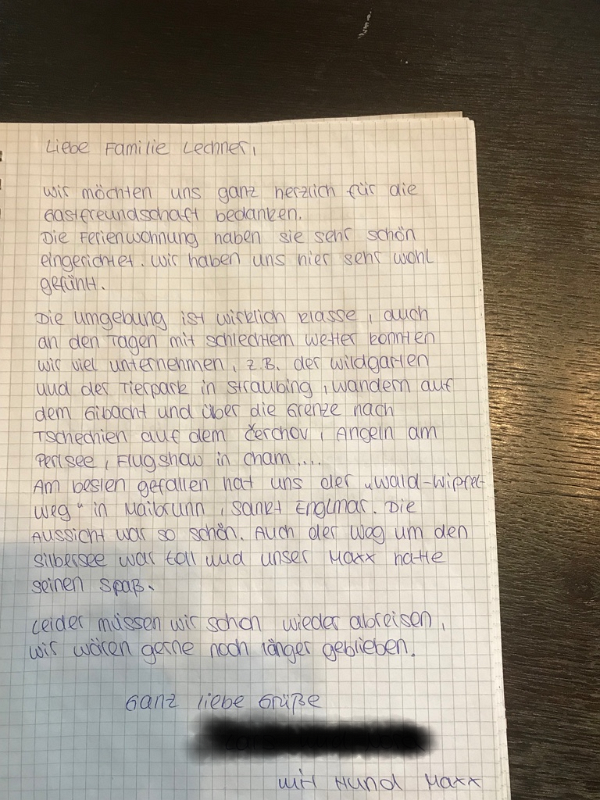 Liebe Familie Lechner,
wir möchten uns ganz herzlich für die
Gastfreundschaft bedanken.
Die Ferienwohnung haben sie sehr schön
eingerichtet. Wir haben uns hier sehr wohl
gefühlt.
Die Umgebung ist wirklich klasse, auch
an den Tagen mit schlechtem Wetter konnten
wir viel unternehmen, z.B. der Wildgarten
und der Tierpark in Straubing, wandern auf
dem Gibacht und über die Grenze nach
Tschechien auf dem Čerchov, Angeln am
Perlsee, Flugshow in Cham,...
Am besten gefallen hat uns der „Wald-Wipfel-
weg" in Maibrunn, Sankt Englmar. Die
Aussicht war so schön. Auch der Weg um den
Silbersee war toll und unser Maxx hatte
seinen Spaß.
Leider müssen wir schon wieder abreisen,
wir wären gerne noch länger geblieben.
Ganz liebe Grüße
mit Hund Maxx